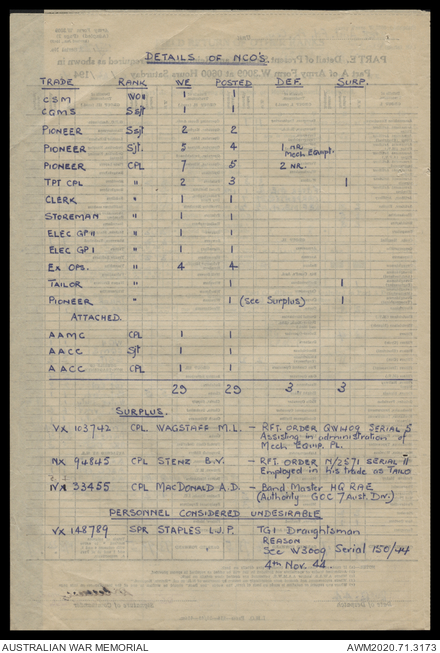 DETAILS OF NCO'S.
TRADE RANK WE POSTED DEF. SURP.
CSM WOII 1 1
CQMS S/Sjt 1 1
PIONEER S/Sjt 2 2
PIONEER Sjt. 5 4 1 NR. Mech Equipt.
PIONEER CPL 7 5 2 NR.
TPT CPL " 2 3 1
CLERK " 1 1
STOREMAN " 1 1
ELEC GP II " 1 1
ELEC GP I " 1 1
EX OPS. " 4 4
TAILOR " 1 1
PIONEER " 1 (See Surplus) 1
ATTACHED.
AAMC CPL 1 1
AACC Sjt 1 1
AACC CPL 1 1
29 29 3 3
SURPLUS.
VX 103742 CPL WAGSTAFF M.L. - RFT. ORDER QW409 SERIAL 5
Assisting in administration of
Mech EQUIP. PL.
NX 94845 CPL STENZ B.V. - RFT. ORDER N/2571 SERIAL 11
Employed in his trade as TAILO
NX 33455 CPL MACDONALD A.D. - Band Master HQ RAE
(Authority GOC 7 Aust. Div.)
PERSONNEL CONSIDERED UNDESIRABLE
VX 148789 SPR STAPLES L.J.P. TG1 Draughtsman
REASON
See W3009 Serial 150/44
4th Nov. 44.
AUSTRALIAN WAR MEMORIAL AWM2020.71.3173